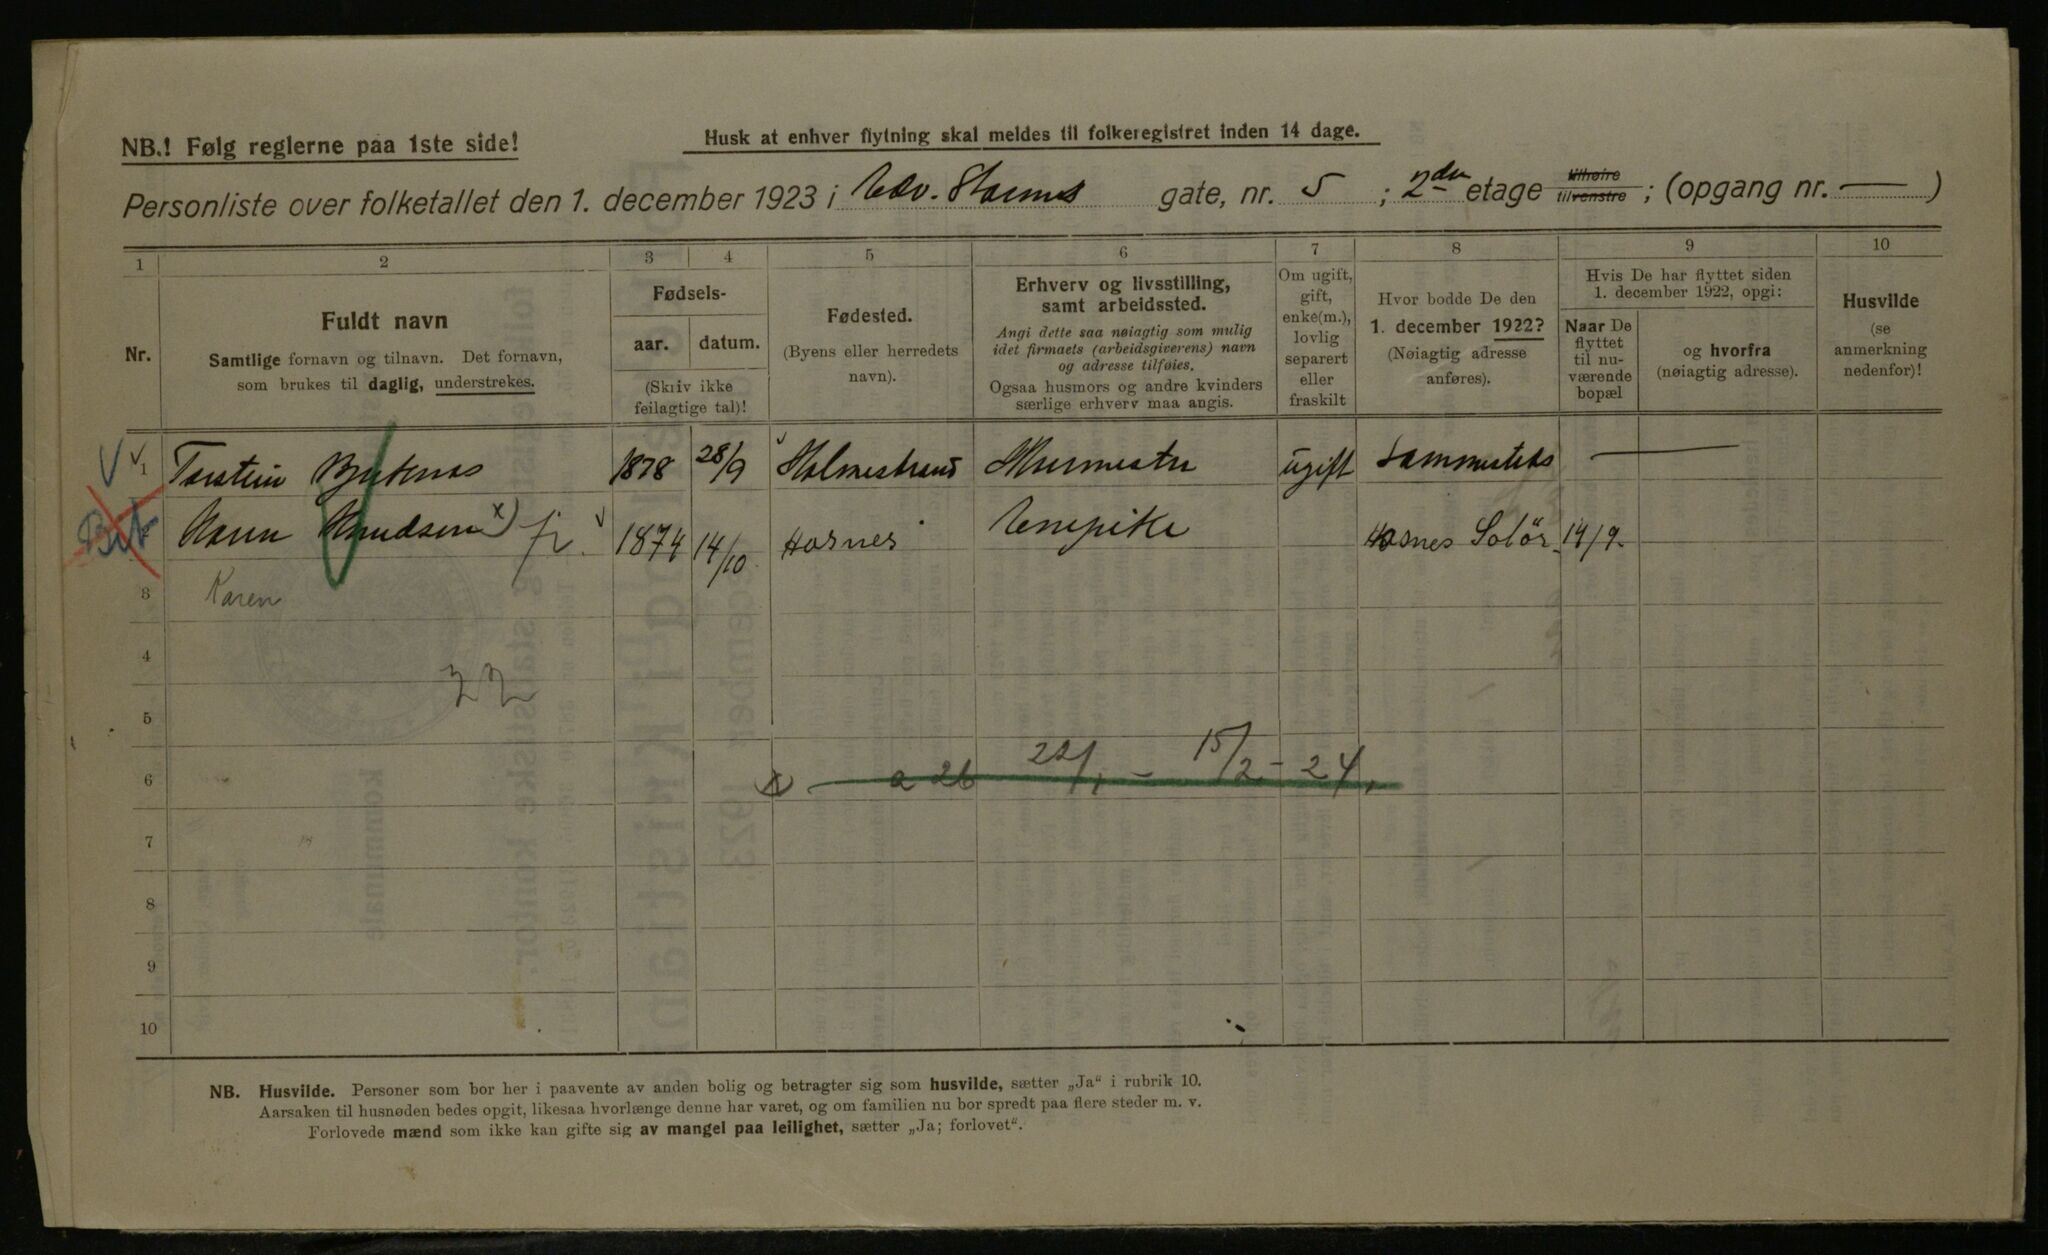 NB.! Følg reglerne paa 1ste side!
Husk at enhver flytning skal meldes til folkeregistret inden 14 dage.
Personliste over folketallet den 1. december 1923 i Edv. Storms gate, nr. 5 ; 2den etage tilhøire tilvenstre ; (opgang nr. — )
1 2 3 4 5 6 7 8 9 10
Nr.
Fuldt navn
Samtlige fornavn og tilnavn. Det fornavn,
som brukes til daglig, understrekes.
Fødsels-
aar. datum.
(Skriv ikke
feilagtige tal)!
Fødested.
(Byens eller herredets
navn).
Erhverv og livsstilling,
samt arbeidssted.
Angi dette saa nøiagtig som mulig
idet firmaets (arbeidsgiverens) navn
og adresse tilføies.
Ogsaa husmors og andre kvinders
særlige erhverv maa angis.
Om ugift,
gift,
enke(m.),
lovlig
separert
eller
fraskilt
Hvor bodde De den
1. december 1922?
(Nøiagtig adresse
anføres).
Hvis De har flyttet siden
1. december 1922, opgi:
Naar De
flyttet
til nu-
værende
bopæl
og hvorfra
(nøiagtig adresse).
Husvilde
(se
anmerkning
nedenfor)!
1 Torstein 1878 28/9 Holmestrand Murmester ugift Sammesteds —
Karen Knudsen x) fr. 1874 14/10 Hasnes Hasnes Solör 14/9.
3 Karen
4
22
5
6 x a 26 22/1 - 15/2 - 24.
7
8
9
10
NB. Husvilde. Personer som bor her i paavente av anden bolig og betragter sig som husvilde, sætter „Ja“ i rubrik 10.
Aarsaken til husnøden bedes opgit, likesaa hvorlænge denne har varet, og om familien nu bor spredt paa flere steder m. v.
Forlovede mænd som ikke kan gifte sig av mangel paa leilighet, sætter „Ja; forlovet“.